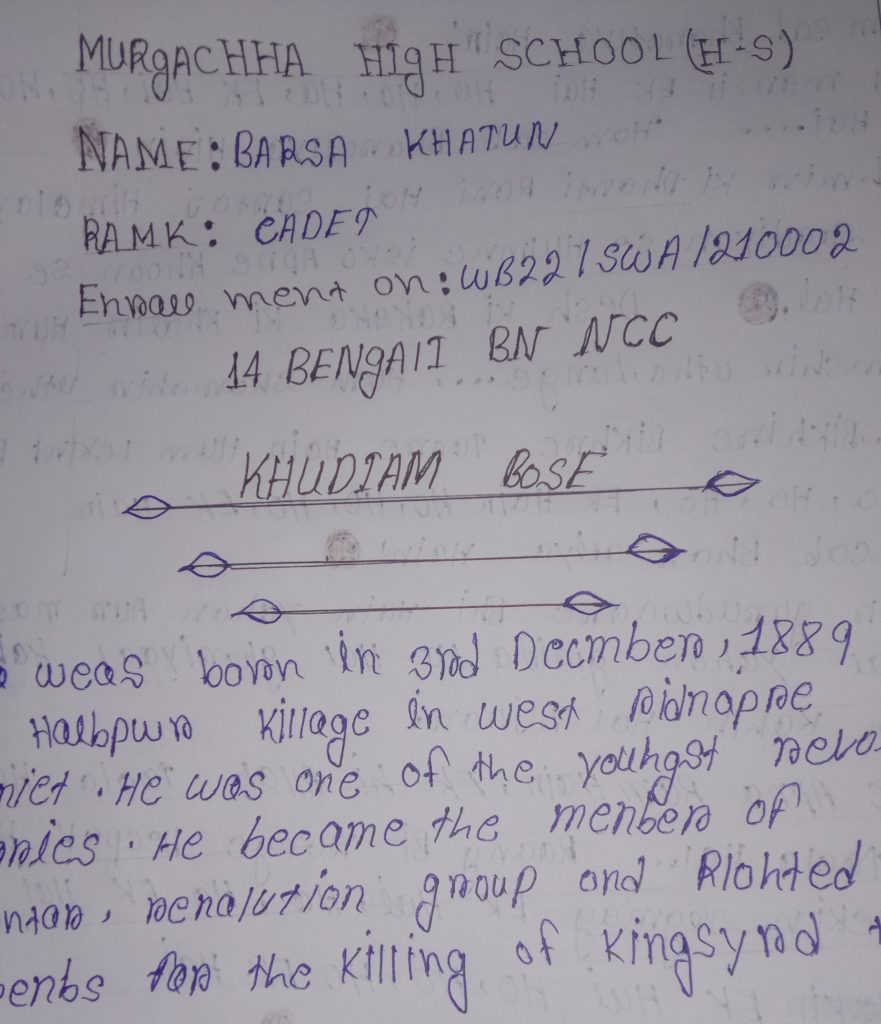 MURgACHHA HIgH SCHOOL (H-S)
NAME: BARSA KHATUN
RAMK: CADET
Enraee ment on: WB22/SWA/210002
14 BENgAlI BN NCC
KHUDIAM BOSE
weas born in 3rd Decmber, 1889
Haebpwr Killage in west
niet. He was one of the youngst revo
ries. He became the menber of
ntar, renalution group and Plohted
enbs for the killing of kingsyrd t